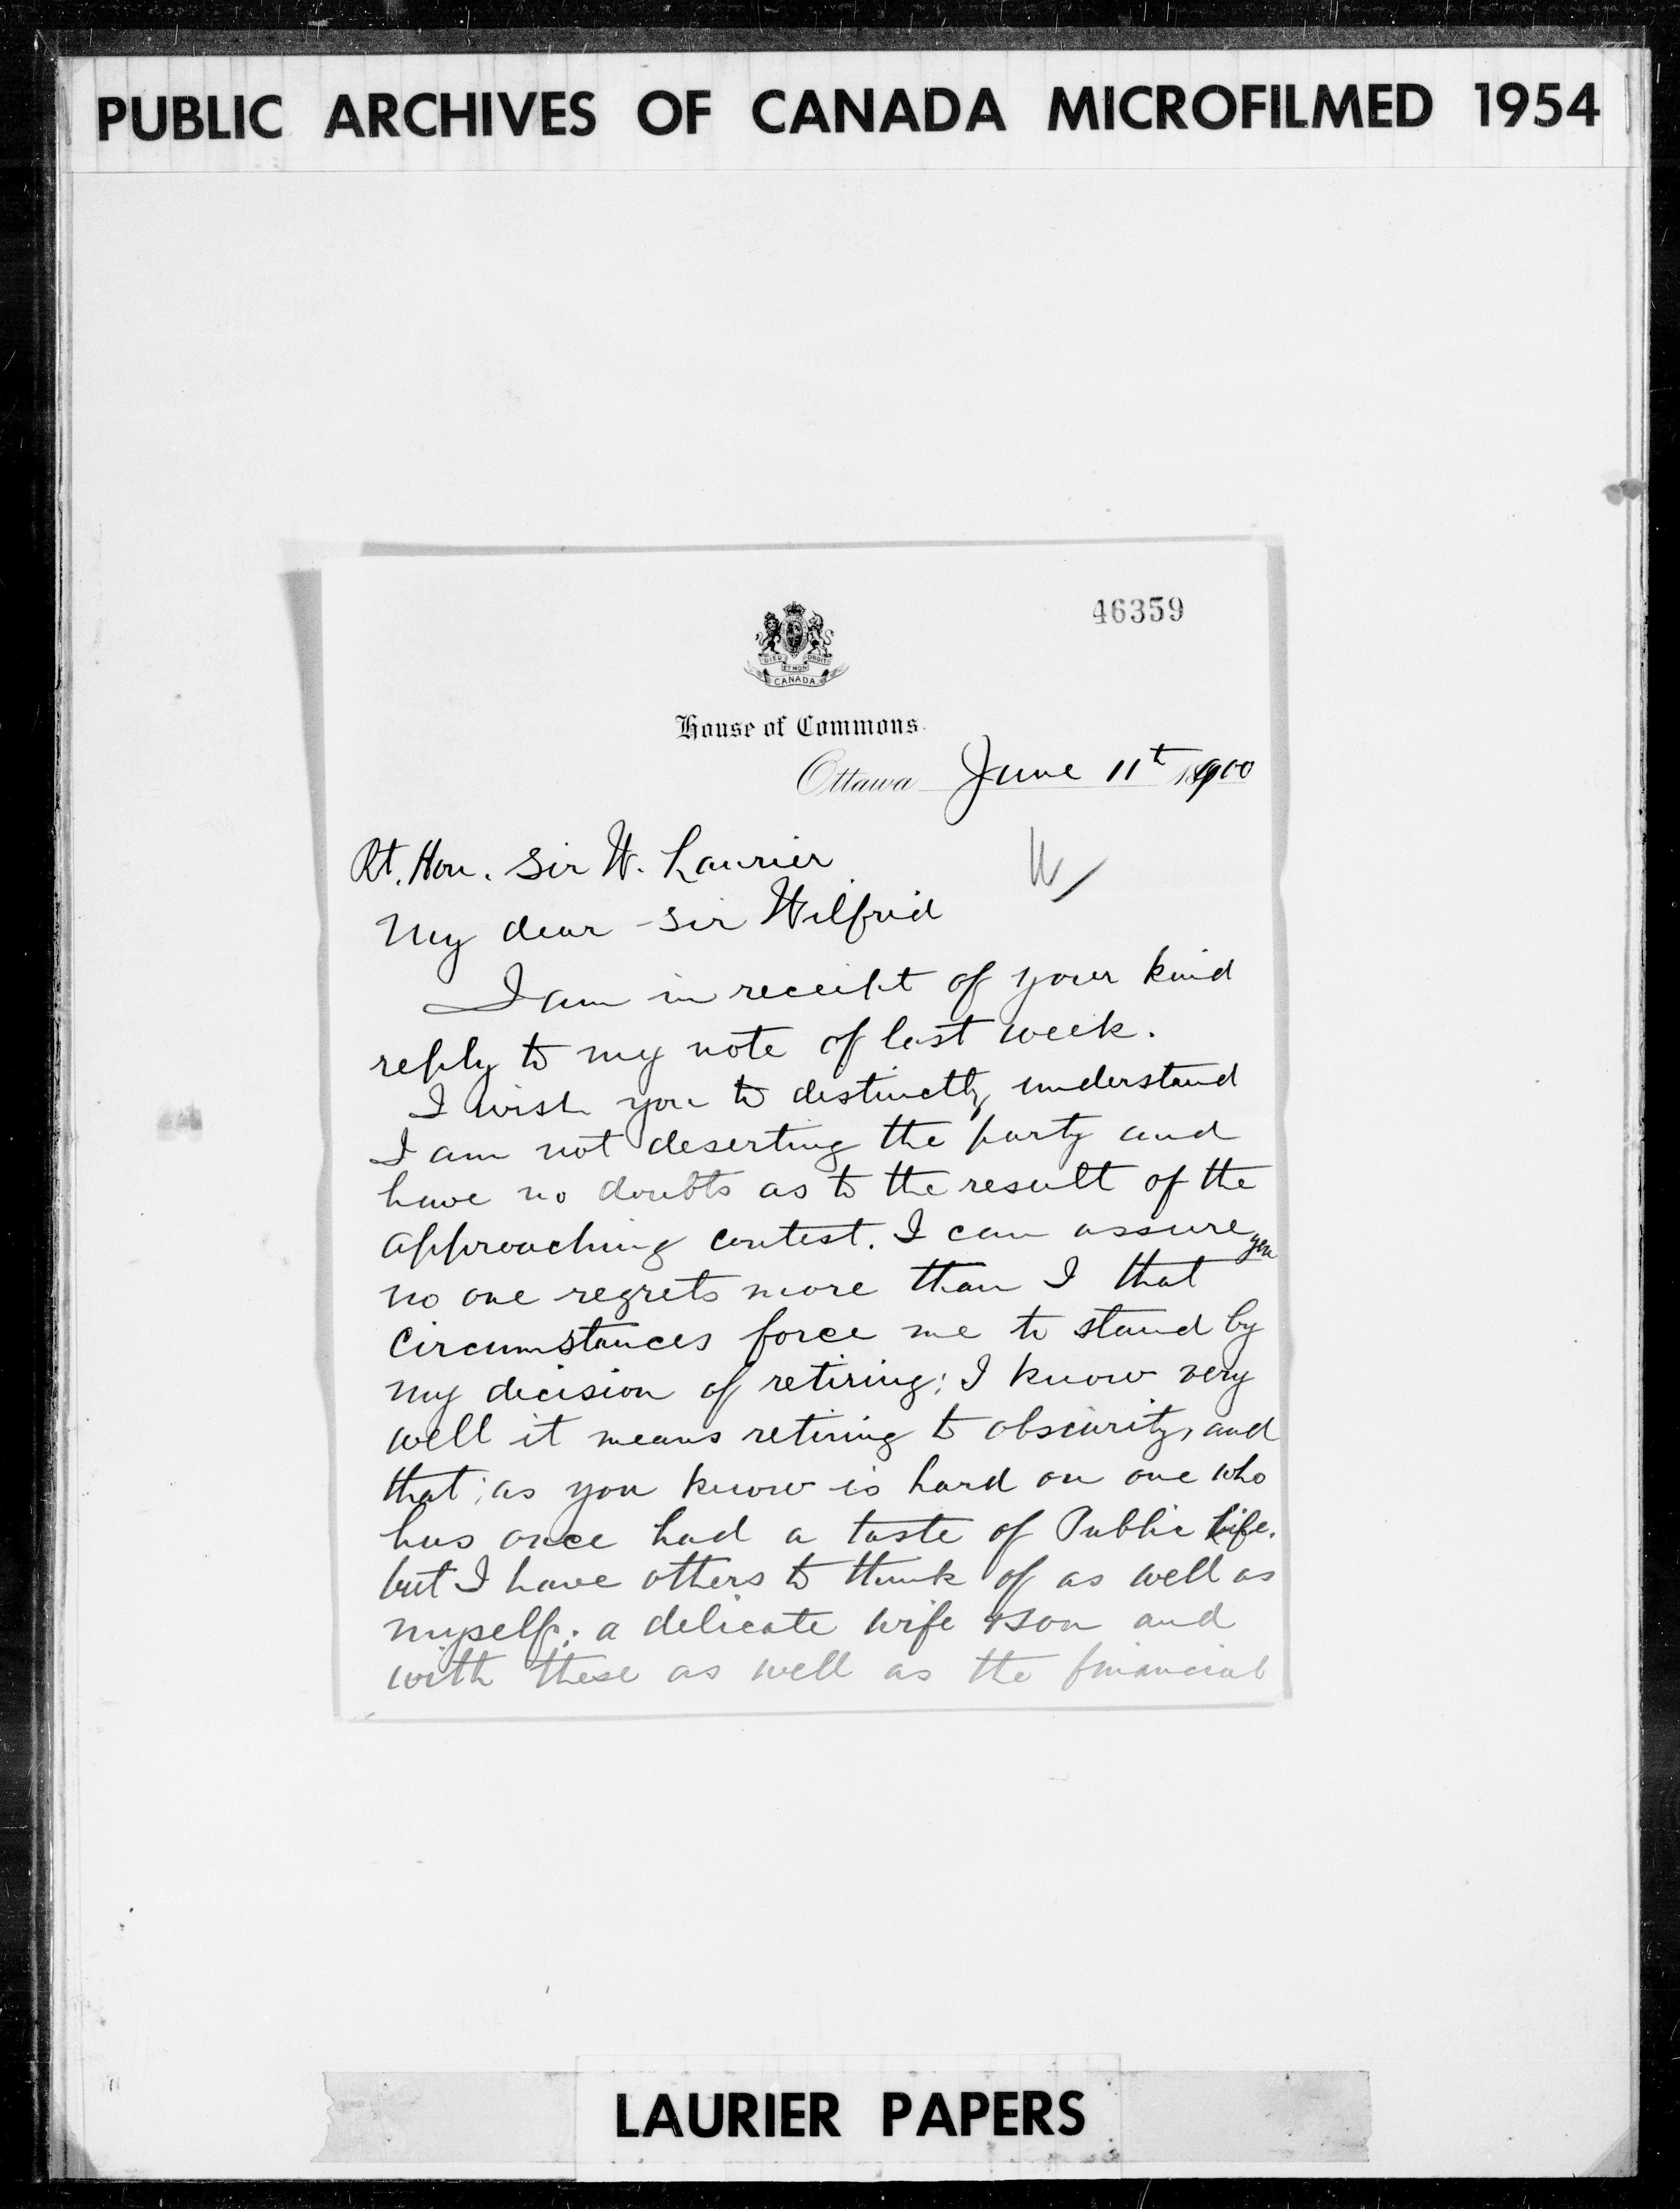 PUBLIC ARCHIVES OF CANADA MICROFILMED 1954
46359
DIEU ET MON DROIT
CANADA
House of Commons.
Ottawa June 11t 1900
Rt. Hon. Sir W. Laurier
My dear Sir Wilfrid
I am in receipt of your kind
reply to my note of last week.
I wish you to destinctly understand
I am not deserting the party and
have no doubts as to the result of the
approaching contest. I can assure you
no one regrets more than I that
circumstances force me to stand by
my decision of retiring; I know very
well it means retiring to obscurity, and
that, as you know is hard on one who
has once had a taste of Public life.
but I have others to think of as well as
myself; a delicate wife & son and
with these as well as the financial
LAURIER PAPERS